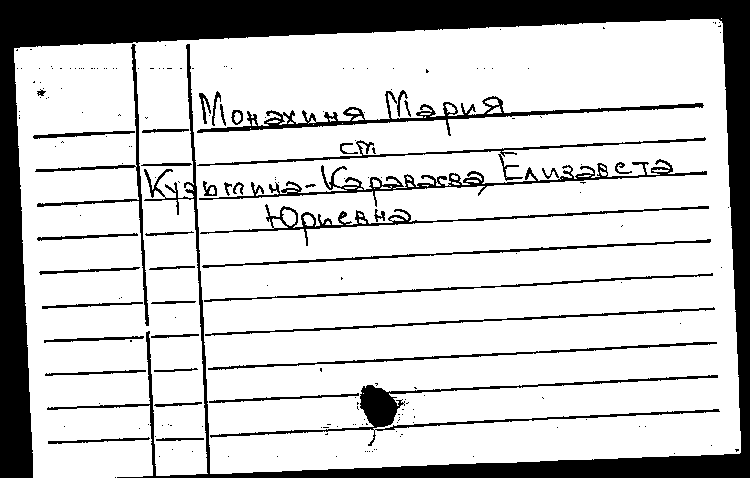 Монахиня Мария
см
Кузьмина-Караваева, Елизавета
Юриевна